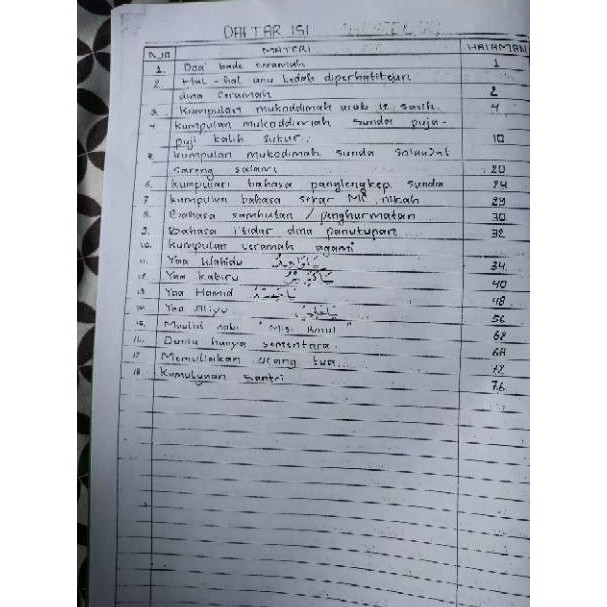 DAFTAR ISI
No MATERI HALAMAN
1. Doa bade ceramah 1
2. Hal-hal anu kedah diperhatikeun
dina ceramah 2
3. Kumpulan mukoddimah arab 4
4 Kumpulan mukoddimah sunda puja-
puji kalih sukur. 10
kumpulan mukodimah sunda solawat
sareng salam 20
6. kumpulan bahasa panglengkep sunda 24
7 kumpulan bahasa sekar nikah 29
8. Bahasa sambutan / penghurmatan 30
9. Bahasa i'tidar dina panutupan 32
10. Kumpulan ceramah agami
11. Yaa Wahidu يَا وَاحِدُ 34
12. Yaa Kabiru يَا كَبِيْرُ 40
13. Yaa Hamid 48
14. Yaa Aliyu 56
15. Maulid nabi 62
16. Dunia hanya sementara. 68
17 Memuliakan orang tua 72
18 Kamulyaan Santri 76